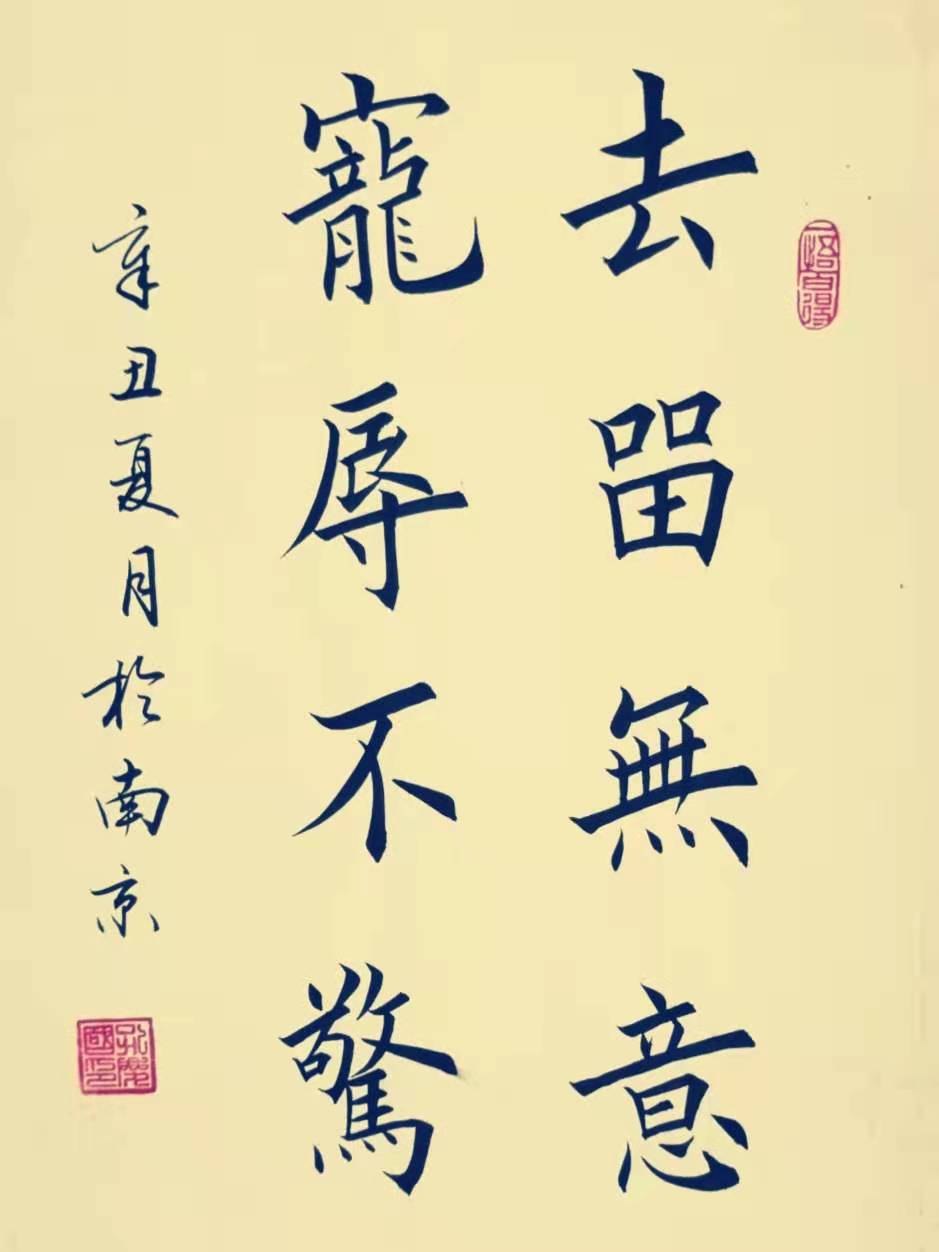 去留無意
寵辱不驚
辛丑夏月於南京